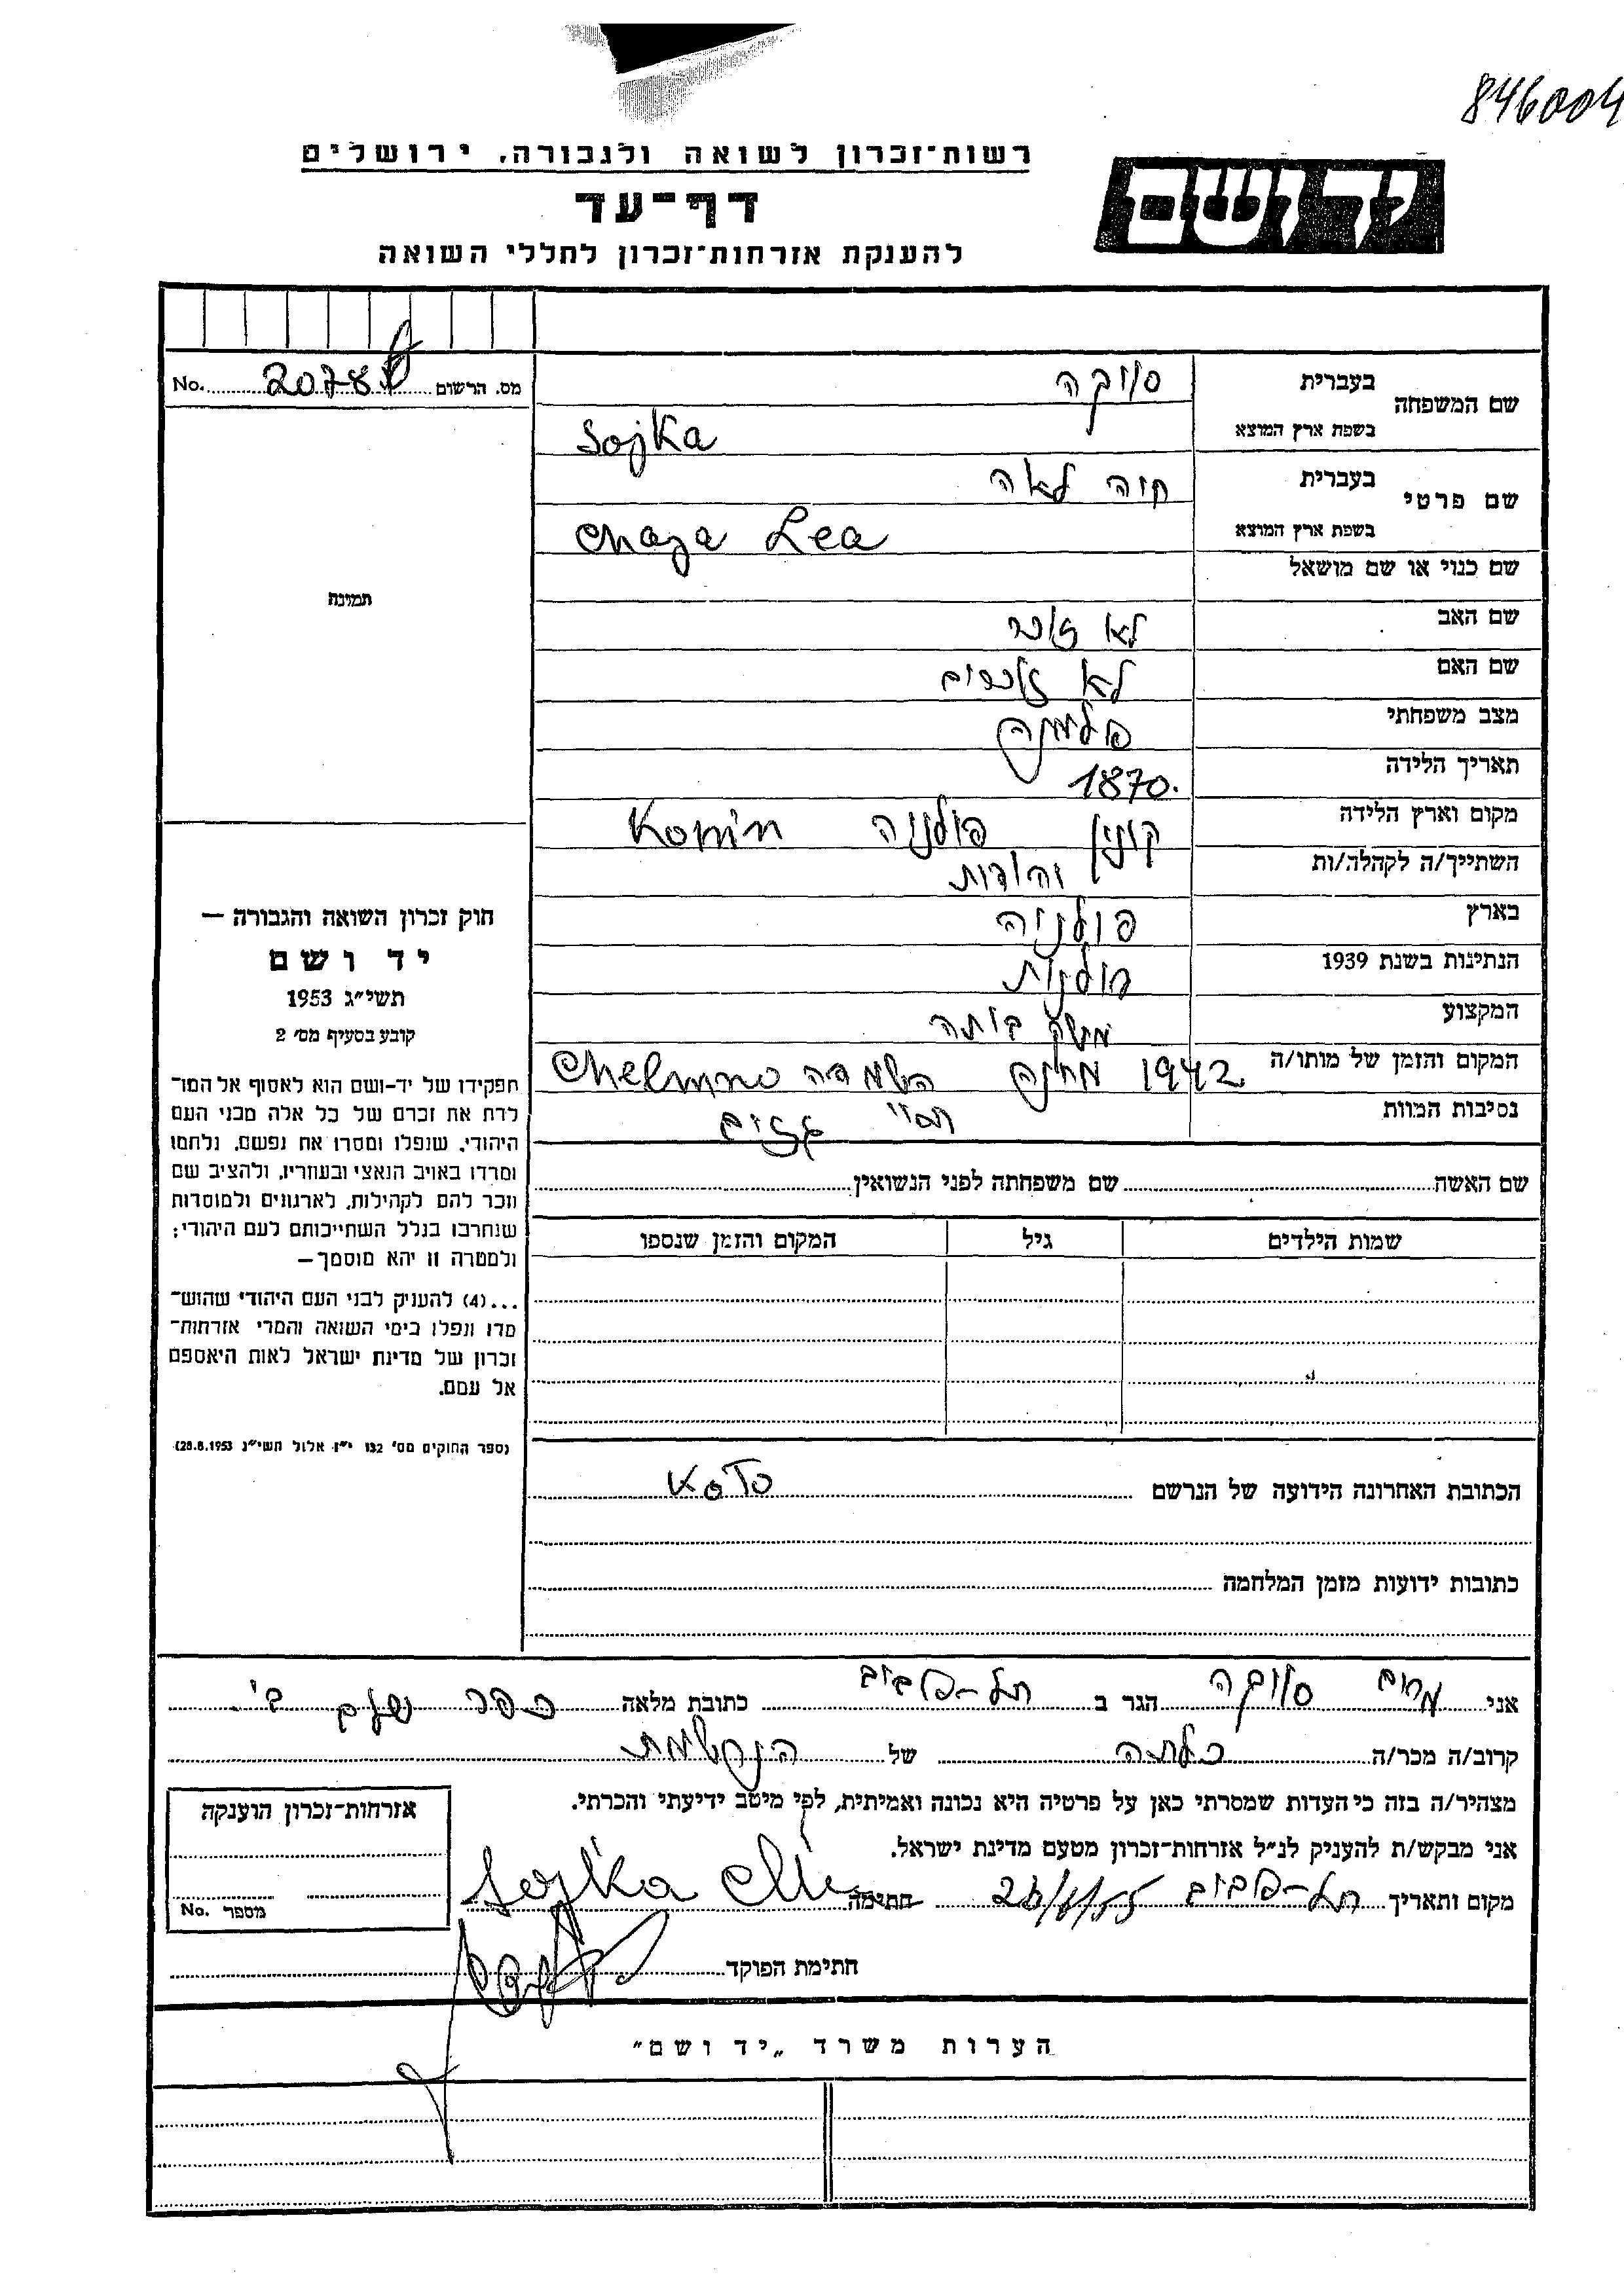 846004
רשות־זכרון לשואה ולגבורה, ירושלים
יד ושם
דף־עד
להענקת אזרחות־זכרון לחללי השואה
מס. הרשום 2078 No.
שם המשפחה בעברית סויקה
בשפת ארץ המוצא Sojka
שם פרטי בעברית חיה לאה
בשפת ארץ המוצא Chaja Lea
שם כנוי או שם מושאל
שם האב לא זוכר
שם האם לא זוכרים
מצב משפחתי
תאריך הלידה 1870.
מקום וארץ הלידה קונין פולניה Konin
השתייך/ה לקהלה/ות יהודית
בארץ פולניה
הנתינות בשנת 1939 פולנית
המקצוע משק ביתה
המקום והזמן של מותו/ה 1942 מחנה השמדה Chelmno
נסיבות המוות גזים
שם האשה שם משפחתה לפני הנשואין
שמות הילדים גיל המקום והזמן שנספו
הכתובת האחרונה הידועה של הנרשם Koło
כתובות ידועות מזמן המלחמה
תמונה
חוק זכרון השואה והגבורה —
יד ושם
תשי״ג 1953
קובע בסעיף מס׳ 2
תפקידו של יד-ושם הוא לאסוף אל המו־
לדת את זכרם של כל אלה מבני העם
היהודי, שנפלו ומסרו את נפשם, נלחמו
ומרדו באויב הנאצי ובעוזריו, ולהציב שם
וזכר להם לקהילות, לארגונים ולמוסדות
שנחרבו בגלל השתייכותם לעם היהודי;
ולמטרה זו יהא מוסמך —
...(4) להעניק לבני העם היהודי שהוש־
מדו ונפלו בימי השואה והמרי אזרחות־
זכרון של מדינת ישראל לאות היאספם
אל עמם.
(ספר החוקים מס׳ 132 י״ז אלול תשי״ג 28.8.1953)
אני מרים סויקה הגר ב תל-אביב כתובת מלאה כפר שלם ב׳
קרוב/ה מכר/ה כלתה של הנרשמת
מצהיר/ה בזה כי העדות שמסרתי כאן על פרטיה היא נכונה ואמיתית, לפי מיטב ידיעתי והכרתי.
אני מבקש/ת להעניק לנ״ל אזרחות־זכרון מטעם מדינת ישראל.
מקום ותאריך תל-אביב חתימה Sojka
חתימת הפוקד
אזרחות־זכרון הוענקה
מספר No.
הערות משרד „יד ושם״